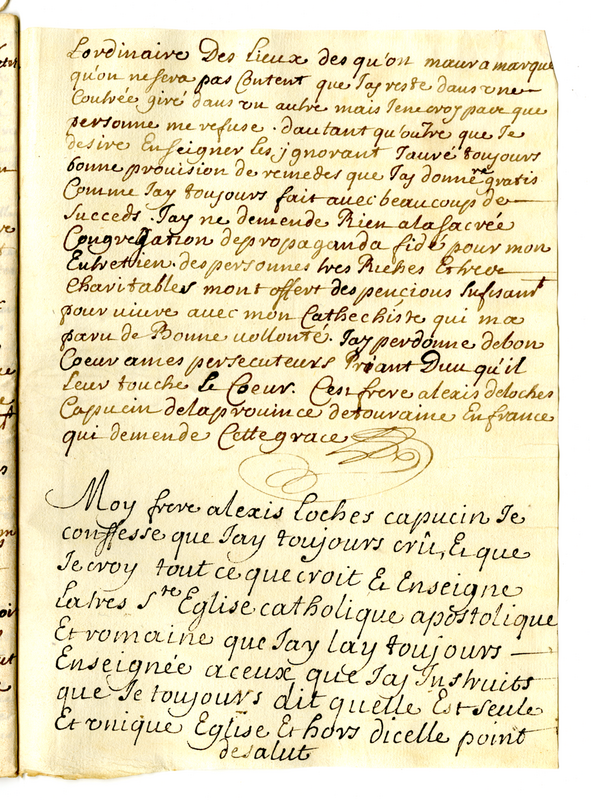 Lordinaire Des Lieux des qu'on maura marque
qu'on ne sera pas Content que Jay reste dans vne
Contrée giré dans vn autre mais Jene croy pare que
personne me refuse. dautant qu'outre que Je
desire Enseigner les jgnorant Jauré toujours
bonne provision de remedes que Jaj donneré gratis
Comme Jay toujours fait avec beaucoup de
Succeds. Jay ne demende Rien alasacrée
Congregation depropaganda fide pour mon
Entretien. des personnes tres Riches Et
Charitables mont offert des pencions sufisant
pour vivre avec mon Cathechiste qui ma
paru de Bonne vollonté. Jay perdonne debon
Coeur ames persecuteurs Priant Duu qu'il
leur touche le Coeur. Cest frere alexis deloches
Capucin delaprouince detouraine Enfrance
qui demende Cettegrace
Moy frere alexis Loches capucin Je
conffesse que Jay toujours crû, Et que
Je croy tout ce que croit Et Enseigne
Latres Ste Eglise catholique apostolique
Et romaine que Jay lay toujours
Enseignée aceux que Jaj Jnstruits
que Je toujours dit quelle Est seule
Et vnique Eglise Et hors dicelle point
desalut